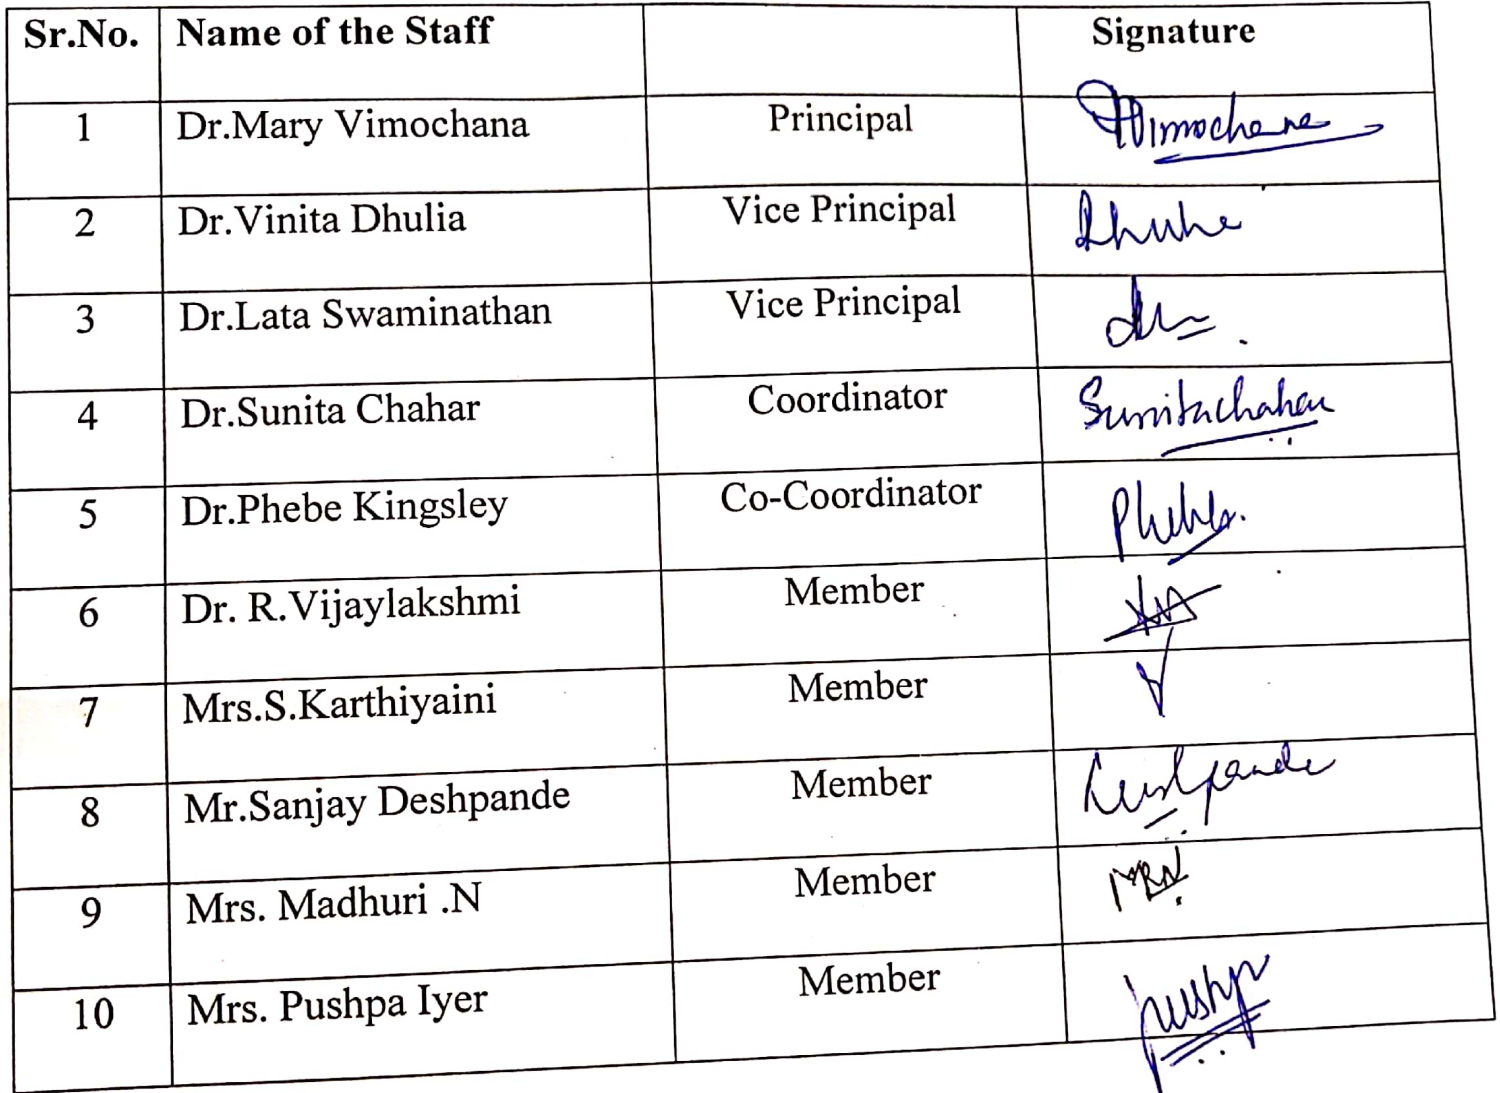 Sr.No. Name of the Staff Signature
1 Dr.Mary Vimochana Principal Vimochana
2 Dr.Vinita Dhulia Vice Principal
3 Dr.Lata Swaminathan Vice Principal
4 Dr.Sunita Chahar Coordinator Sunitachahar
5 Dr.Phebe Kingsley Co-Coordinator Phebe
6 Dr. R.Vijaylakshmi Member
7 Mrs.S.Karthiyaini Member
8 Mr.Sanjay Deshpande Member
9 Mrs. Madhuri .N Member
10 Mrs. Pushpa Iyer Member